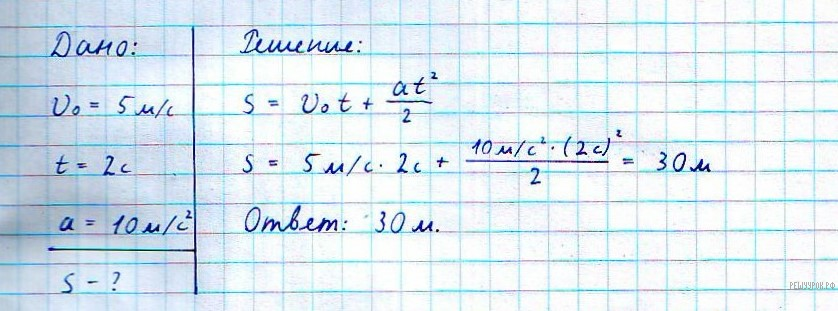 Дано:
υ₀ = 5 м/с
t = 2с
a = 10 м/с²
S - ?
Решение:
S = υ₀t + at²/2
S = 5 м/с · 2с + 10 м/с² · (2с)²/2 = 30 м
Ответ: 30 м.
РЕШУУРОК.РФ